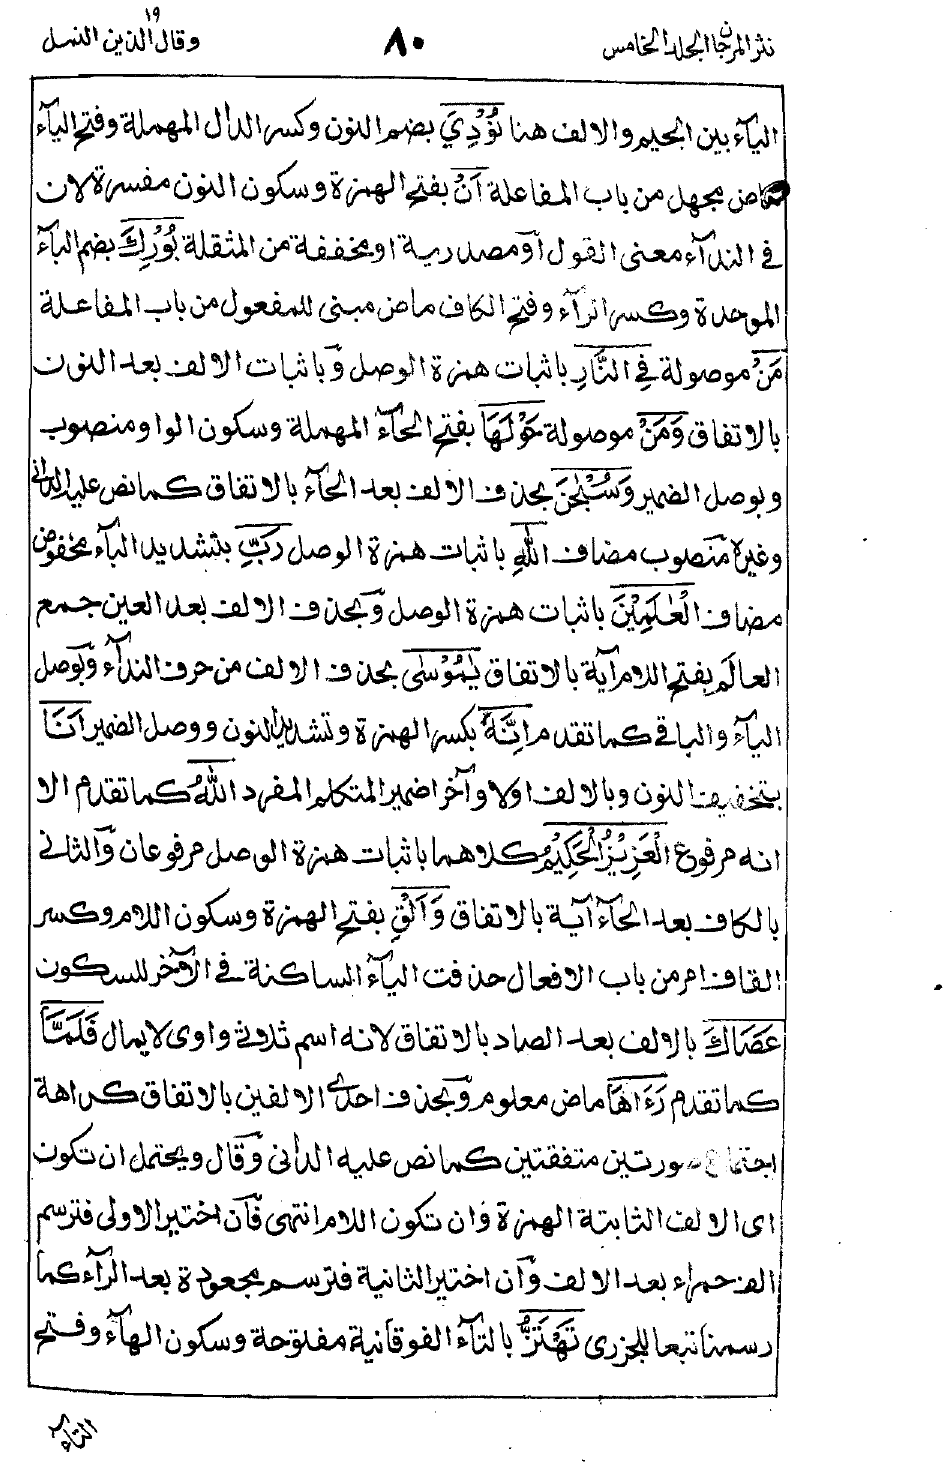 نثر المرجان المجلد الخامس ٨٠ وقال الذين ١٩ النمل
اليآء بين الجيم والالف هنا نُوْدِيَ بضم النون وكسر الدال المهملة وفتح اليآء
ماض مجهل من باب المفاعلة اَنْ بفتح الهمزة وسكون النون مفسرة لان
فى الندآء معنى القول اَو مصدرية او مخففة من المثقلة بُوْرِكَ بضم البآء
الموحدة وكسر الرآء وفتح الكاف ماض مبنى للمفعول من باب المفاعلة
مَنْ موصولة فِي النَّارِ باثبات همزة الوصل وَباثبات الالف بعد النون
بالاتفاق وَمَنْ موصولة حَوْلَهَا بفتح الحآء المهملة وسكون الواو منصوب
وبوصل الضمير وَسُبْحٰنَ بحذف الالف بعد الحآء بالاتفاق كما نص عليه الدانى
وغيره منصوب مضاف اللّٰهِ باثبات همزة الوصل رَبِّ بتشديد البآء مخفوض
مضاف الْعٰلَمِيْنَ باثبات همزة الوصل وَبحذف الالف بعد العين جمع
العالَم بفتح اللام آية بالاتفاق يٰمُوْسٰى بحذف الالف من حرف الندآء وَبوصل
اليآء والباقى كما تقدم اِنَّهٗ بكسر الهمزة وتشديد النون ووصل الضمير اَنَا
بتخفيف النون وبالالف اولا وآخرا ضمير المتكلم المفرد اللّٰهُ كما تقدم الا
انه مرفوع الْعَزِيْزُ الْحَكِيْمُ كلاهما باثبات همزة الوصل مرفوعان وَالثانى
بالكاف بعد الحآء آية بالاتفاق وَاَلْقِ بفتح الهمزة وسكون اللام وكسر
القاف امر من باب الافعال حذفت اليآء الساكنة فى الآخر للسكون
عَصَاكَ بالالف بعد الصاد بالاتفاق لانه اسم ثلاثى واوى لا يمال فَلَمَّا
كما تقدم رَءَاهَا ماض معلوم وَبحذف احدى الالفين بالاتفاق كراهة
اجتماع صورتين متفقتين كما نص عليه الدانى وَقال ويحتمل ان تكون
اى الالف الثابتة الهمزة وَان تكون اللام انتهى فَان اختير الاولى فترسم
الف حمراء بعد الالف وَان اختير الثانية فترسم مجعودة بعد الرآء كما
رسمنا تبعا للجزرى تَهْتَزُّ بالتآء الفوقانية مفتوحة وسكون الهآء وفتح
التاء